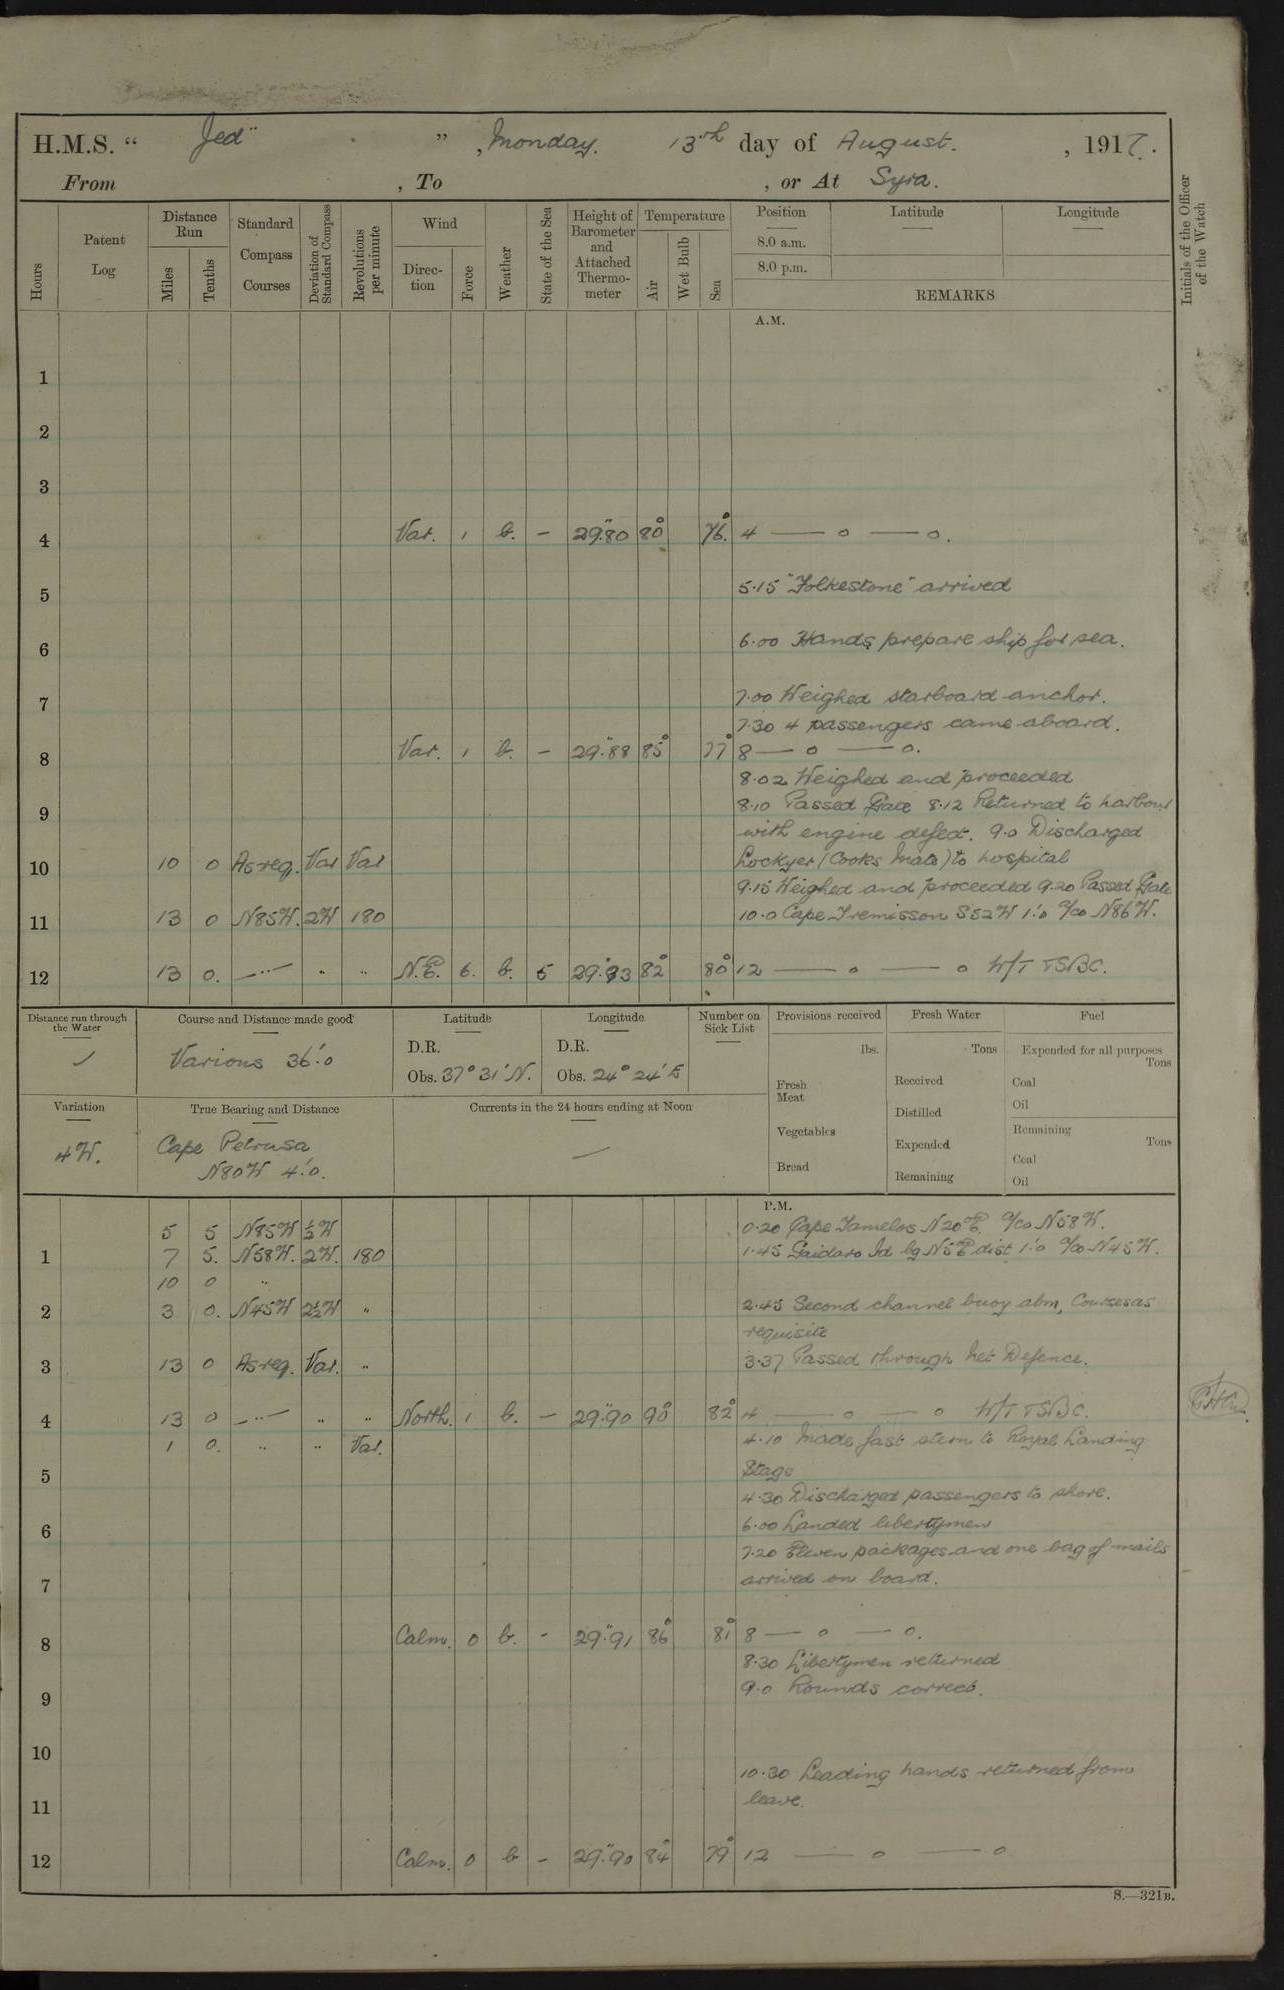 H.M.S. " Jed " , Monday. 13th day of August. , 1917.
From , To , or At Syra.
Hours
Patent Log
Distance Run
Miles
Tenths
Standard Compass Courses
Deviation of Standard Compass
Revolutions per minute
Wind
Direction
Force
Weather
State of the Sea
Height of Barometer and Attached Thermometer
Temperature
Air
Wet Bulb
Sea
Position
8.0 a.m.
8.0 p.m.
Latitude
Longitude
REMARKS
Initials of the Officer of the Watch
A.M.
1
2
3
4 Var. 1 b. - 29".80 80° 76.° 4 — o — o.
5 5.15 "Folkestone" arrived
6 6.00 Hands prepare ship for sea.
7 7.00 Weighed starboard anchor.
7.30 4 passengers came aboard.
8 Var. 1 b. - 29".88 85° 77° 8 — o — o.
8.02 Weighed and proceeded
9 8.10 Passed Gate 8.12 Returned to harbour
with engine defect. 9.0 Discharged
10 10 0 As req. Var Var Lockyer (Cooks Mate) to hospital
9.15 Weighed and proceeded 9.20 Passed Gate
11 13 0 N85W. 2W 180 10.0 Cape Tremisson S52W 1'.0 a/co N86W.
12 13 0. —"— " " N.E. 6. b. 5 29".93 82° 80° 12 — o — o W/T TSBC.
Distance run through the Water
Course and Distance made good
Various 36'.0
Latitude
D.R.
Obs. 37° 31' N.
Longitude
D.R.
Obs. 24° 24' E
Number on Sick List
Provisions received
lbs.
Fresh Meat
Vegetables
Bread
Fresh Water
Tons
Received
Distilled
Expended
Remaining
Fuel
Expended for all purposes
Tons
Coal
Oil
Remaining
Tons
Coal
Oil
Variation
4W.
True Bearing and Distance
Cape Petrusa
N80W 4'.0.
Currents in the 24 hours ending at Noon
—
P.M.
5 5 N85W ½W 0.20 Cape Tamelos N20°E a/co N58W.
1 7 5. N58W. 2W. 180 1.45 Gaidaro Id bg N5°E dist 1'.0 a/co N45W.
10 0 "
2 3 0. N45W 2½W " 2.45 Second channel buoy abm, Courses as
requisite
3 13 0 As req. Var. " 3.37 Passed through Net Defence.
4 13 0 —"— " " North. 1 b. - 29".90 90° 82° 4 — o — o W/T TSBC.
1 0. " " Var. 4.10 Made fast stern to Royal Landing
5 Stage
4.30 Discharged passengers to shore.
6 6.00 Landed libertymen
7.20 Eleven packages and one bag of mails
7 arrived on board.
8 Calm. 0 b. - 29".91 86° 81° 8 — o — o.
8.30 Libertymen returned
9 9.0 Rounds correct.
10
10.30 Leading hands returned from
11 leave.
12 Calm. 0 b - 29".90 84° 79° 12 — o — o
8.—321B.